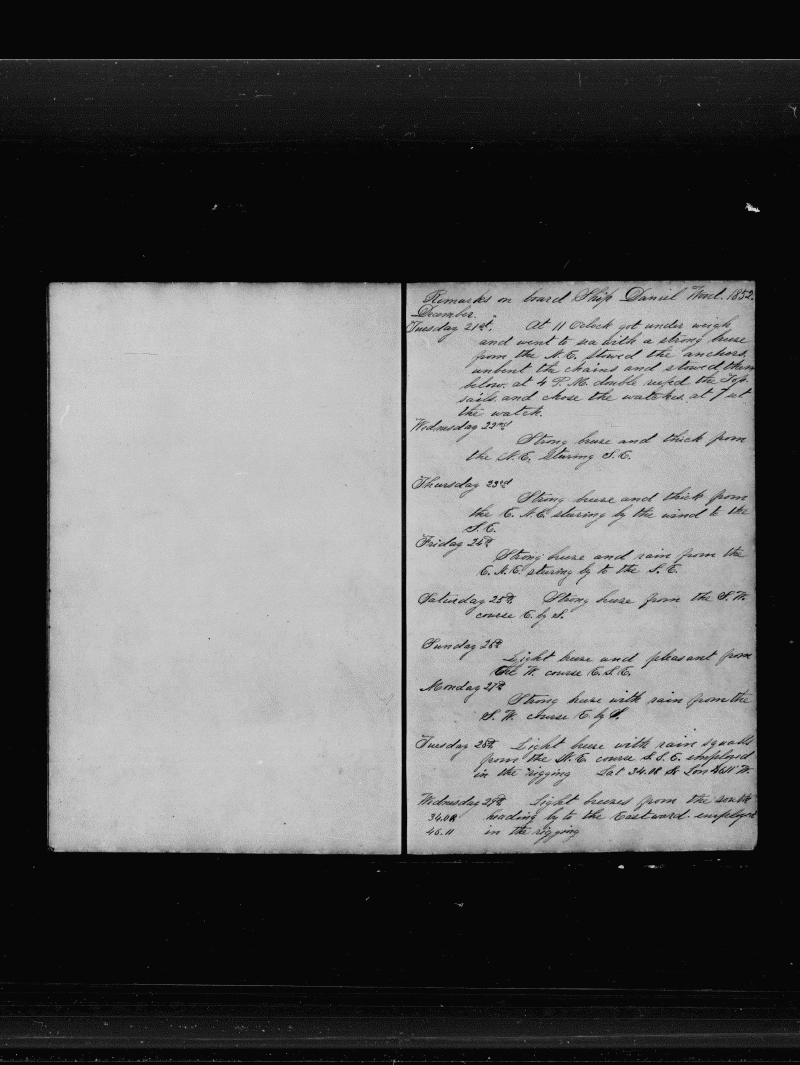 Remarks on board Ship Daniel Wood. 1852.
December.
Tuesday 21st. At 11 Oclock got under weigh
and went to sea with a strong breese
from the N.E. Stowed the anchors,
unbent the chains and stowed them
below. at 4 P.M. double reefed the Top
sails. and chose the watches. at 7 set
the watch.
Wednesday 22nd
Strong breese and thick from
the N.E. Sturing S.E.
Thursday 23rd
Strong breese and thick from
the E.N.E. sturing by the wind to the
S.E.
Friday 24th
Strong breese and rain from the
E.N.E. sturing by to the S.E.
Saturday 25th. Strong breese from the S.W.
course E. by S.
Sunday 26th
Light breese and pleasant from
the W. course E.S.E.
Monday 27th
Strong breese with rain from the
S.W. course E. by S.
Tuesday 28th. Light breese with rain squalls
from the N.E. course S.S.E. employed
in the rigging Lat 34.08 N Lon 46.11 W.
Wednesday 29th Light breezes from the south
34.08 heading by to the Eastward. employed
46.11 in the rigging